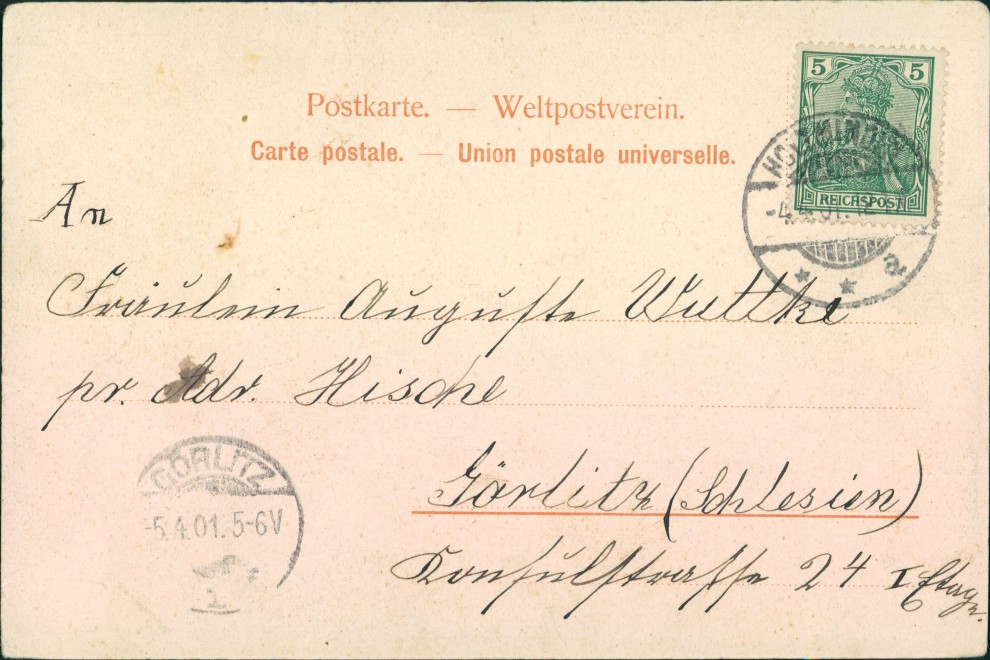 Postkarte. — Weltpostverein.
Carte postale. — Union postale universelle.
5 5
REICHSPOST
a
An
Fräulein Auguste Wuttke
pr. Adr. Hische
Görlitz (Schlesien)
Konsulstrasse 24 I Etage.
GÖRLITZ
-5.4.01.5-6V
1